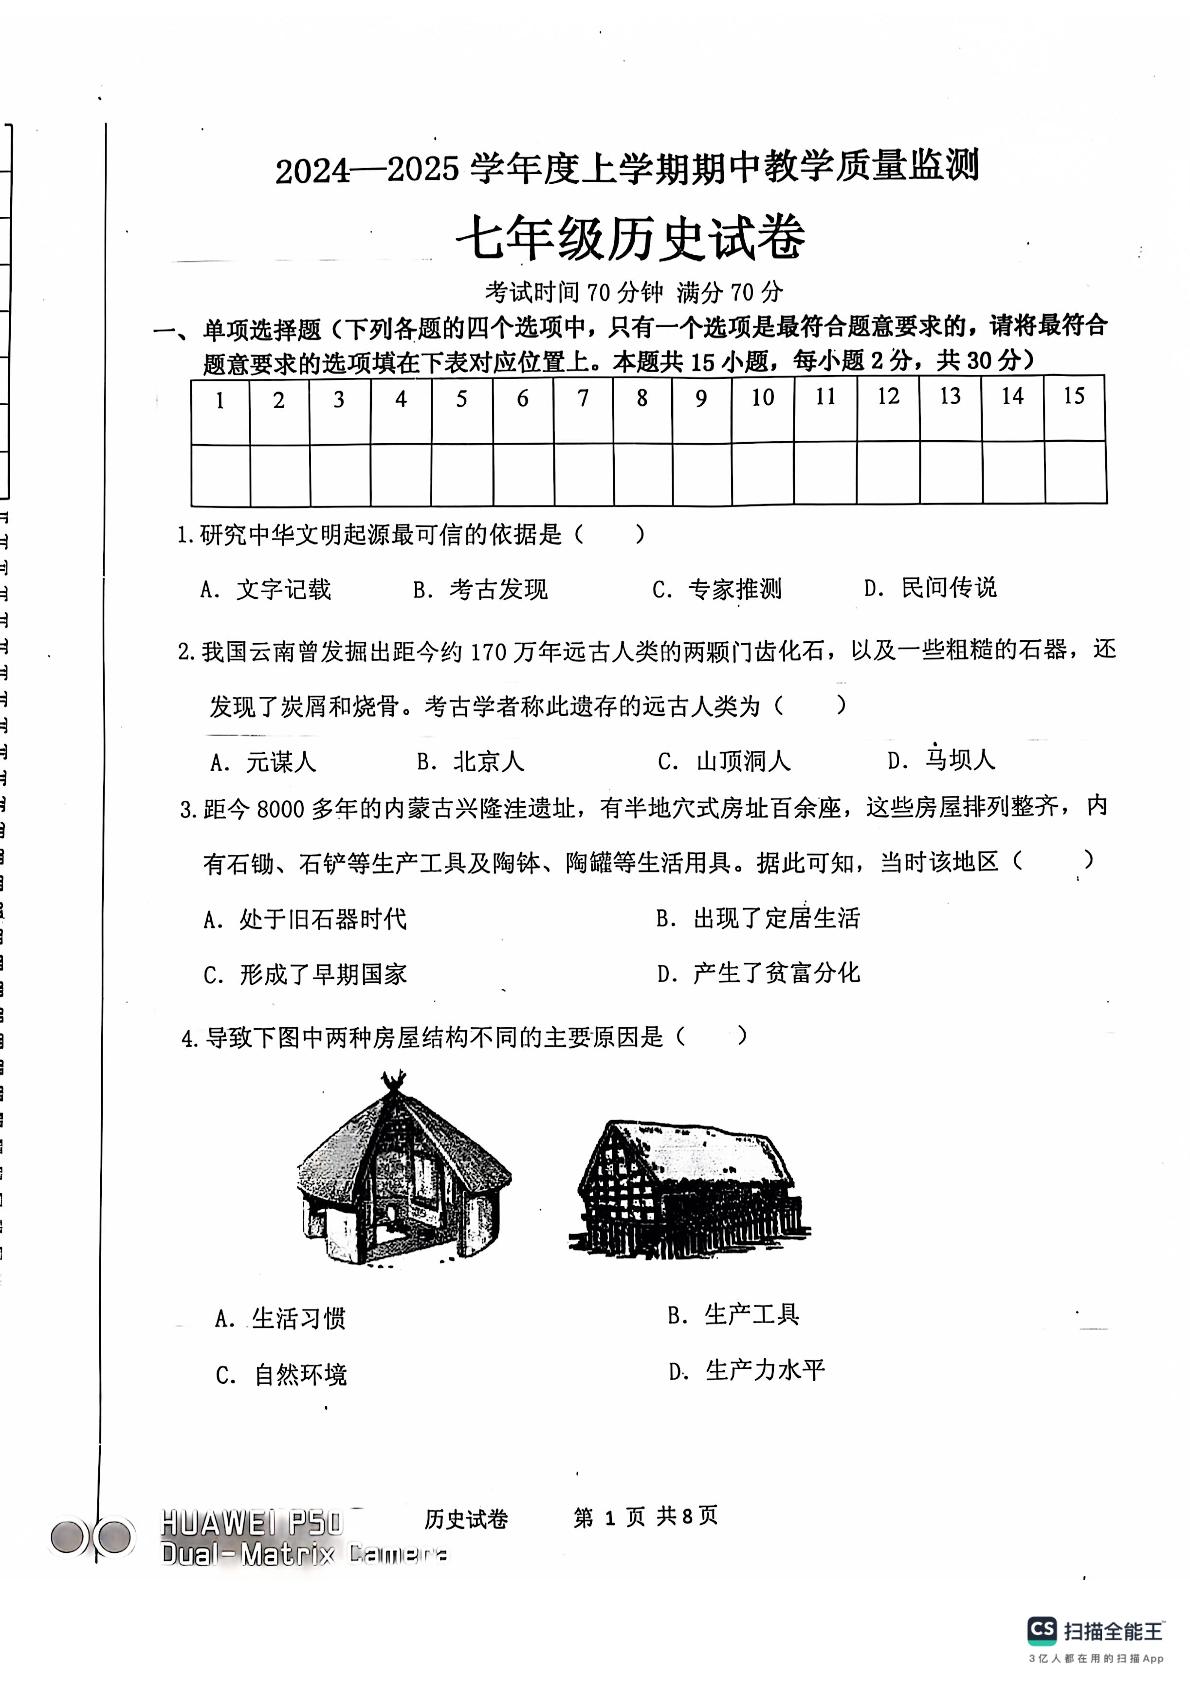 2024—2025 学年度上学期期中教学质量监测
七年级历史试卷
考试时间 70 分钟 满分 70 分
一、单项选择题（下列各题的四个选项中，只有一个选项是最符合题意要求的，请将最符合
题意要求的选项填在下表对应位置上。本题共 15 小题，每小题 2 分，共 30 分）
1 2 3 4 5 6 7 8 9 10 11 12 13 14 15
1.研究中华文明起源最可信的依据是（ ）
A. 文字记载 B. 考古发现 C. 专家推测 D. 民间传说
2.我国云南曾发掘出距今约 170 万年远古人类的两颗门齿化石，以及一些粗糙的石器，还
发现了炭屑和烧骨。考古学者称此遗存的远古人类为（ ）
A. 元谋人 B. 北京人 C. 山顶洞人 D. 马坝人
3.距今 8000 多年的内蒙古兴隆洼遗址，有半地穴式房址百余座，这些房屋排列整齐，内
有石锄、石铲等生产工具及陶钵、陶罐等生活用具。据此可知，当时该地区（ ）
A. 处于旧石器时代 B. 出现了定居生活
C. 形成了早期国家 D. 产生了贫富分化
4.导致下图中两种房屋结构不同的主要原因是（ ）
A. 生活习惯 B. 生产工具
C. 自然环境 D. 生产力水平
历史试卷 第 1 页 共 8 页
HUAWEI P50
Dual-Matrix Camera
CS 扫描全能王
3亿人都在用的扫描App